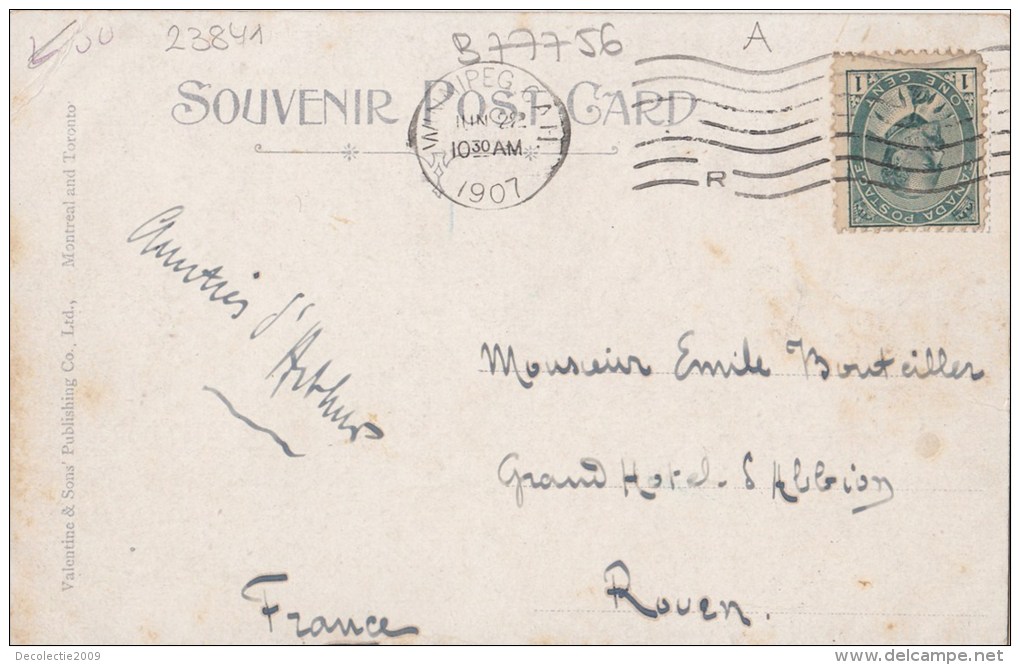 23841
B77756
A
SOUVENIR POST CARD
WINNIPEG CAN
JUN
10 30 AM
1907
R
1 ONE CENT 1
CANADA POSTAGE
Amitiés d'
Arthur
Monsieur Emile Bouteiller
Grand Hotel d'Albion
Rouen.
France
Valentine & Sons' Publishing Co., Ltd., Montreal and Toronto
Decolectie2009
www.delcampe.net